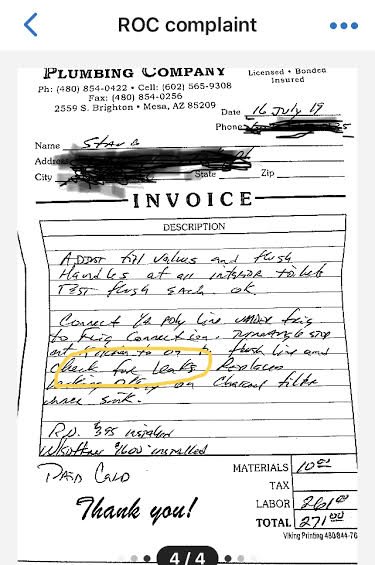 ROC complaint
PLUMBING COMPANY
Licensed • Bonded
Insured
Ph: (480) 854-0422 • Cell: (602) 565-9308
Fax: (480) 854-0256
2559 S. Brighton • Mesa, AZ 85209
Date 16 July 19
Phone
Name
Address
City State Zip
INVOICE
DESCRIPTION
Adjust fill valves and flush
Handles at all interior toilets
Test flush each ok
Connect 1/4 poly line under frig
to frig connection.
flush line and
check for leaks Replaces
on Charcoal filter
under sink.
R.O. $395 installed
installed
Paid Card
Thank you!
MATERIALS 10.00
TAX
LABOR 261.00
TOTAL 271.00
Viking Printing 480/844-76
4/4